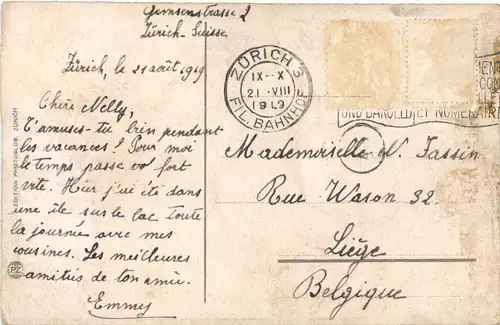 Gemsenstrasse 2
Zürich-Suisse
Zürich, le 21 août 1919
Chère Nelly,
T'amuses-tu bien pendant
les vacances? Pour moi
le temps passe fort
vite. Hier j'ai été dans
une île sur le lac toute
la journée avec mes
cousines. Les meilleures
amitiés de ton amie.
Emmy
EDITION PHOTOGLOB, ZÜRICH
PZ
ZÜRICH 3
IX--X
21. VIII
1919
FIL. BAHNHOF
Mademoiselle N. Fassin
Rue Wason 32.
Liège
Belgique